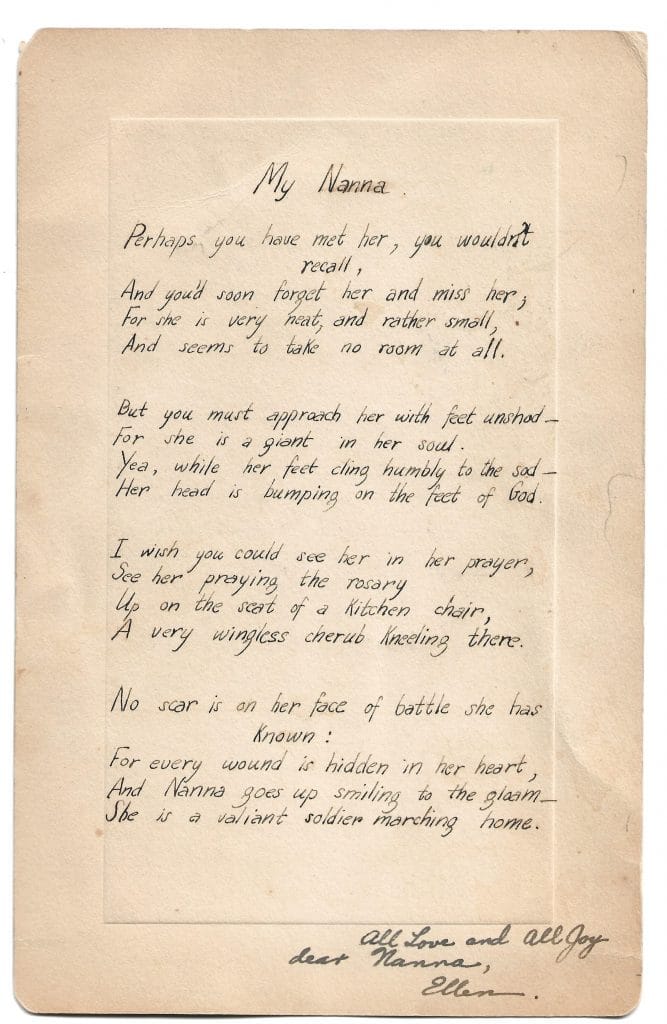 My Nanna.
Perhaps you have met her, you wouldn't
recall,
And you'd soon forget her and miss her;
For she is very neat, and rather small,
And seems to take no room at all.
But you must approach her with feet unshod—
For she is a giant in her soul.
Yea, while her feet cling humbly to the sod—
Her head is bumping on the feet of God.
I wish you could see her in her prayer,
See her praying the rosary
Up on the seat of a kitchen chair,
A very wingless cherub kneeling there.
No scar is on her face of battle she has
known:
For every wound is hidden in her heart,
And Nanna goes up smiling to the gloam—
She is a valiant soldier marching home.
All Love and All Joy
dear Nanna,
Ellen.